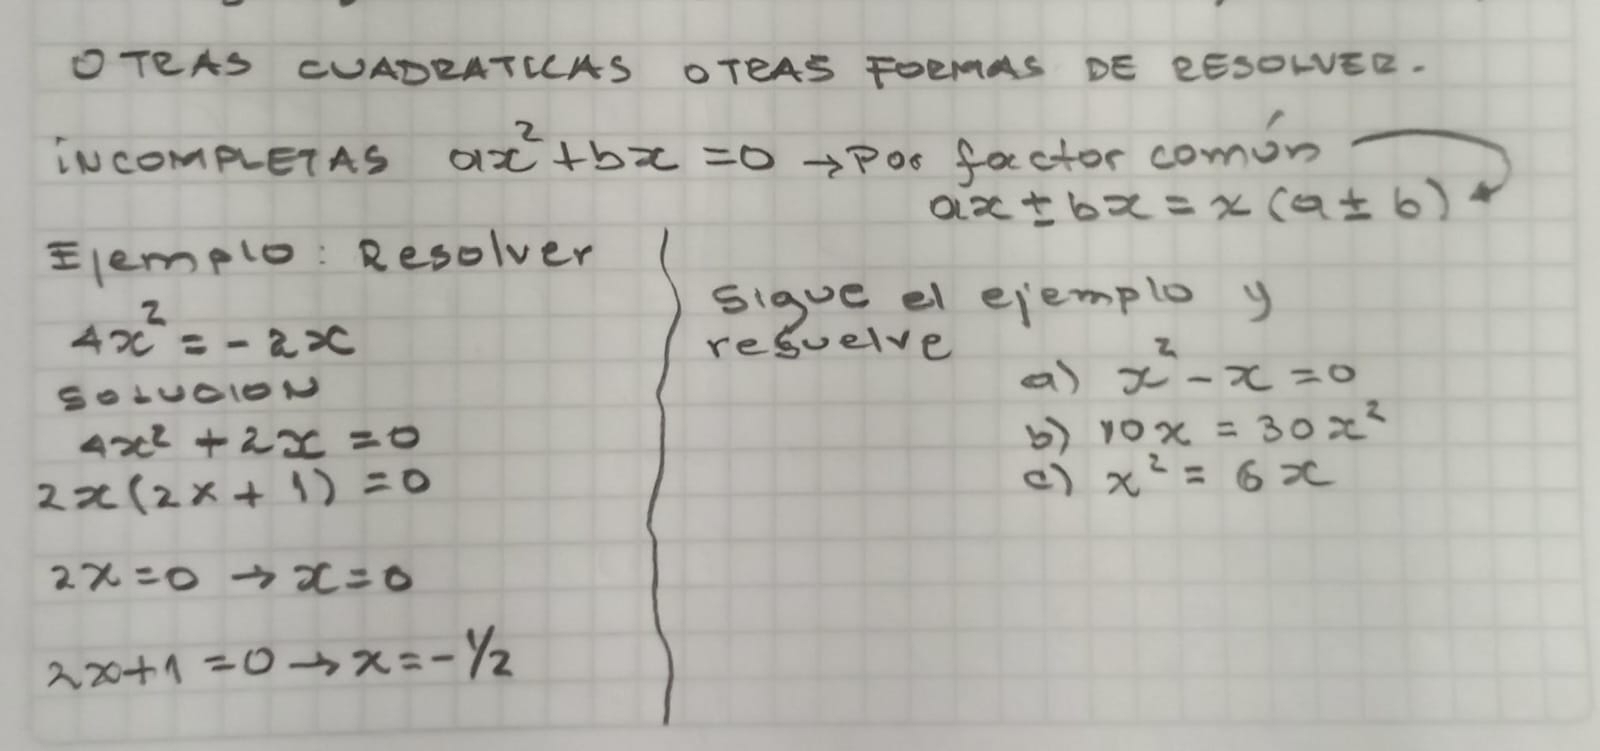 OTRAS CUADRATICAS OTRAS FORMAS DE RESOLVER.
INCOMPLETAS ax² + bx = 0 → Por factor común
ax ± bx = x (a ± b)
Ejemplo: Resolver
4x² = - 2x
SOLUCION
4x² + 2x = 0
2x(2x + 1) = 0
2x = 0 → x = 0
2x+1 = 0 → x = - 1/2
Sigue el ejemplo y
resuelve
a) x² - x = 0
b) 10x = 30x²
c) x² = 6x